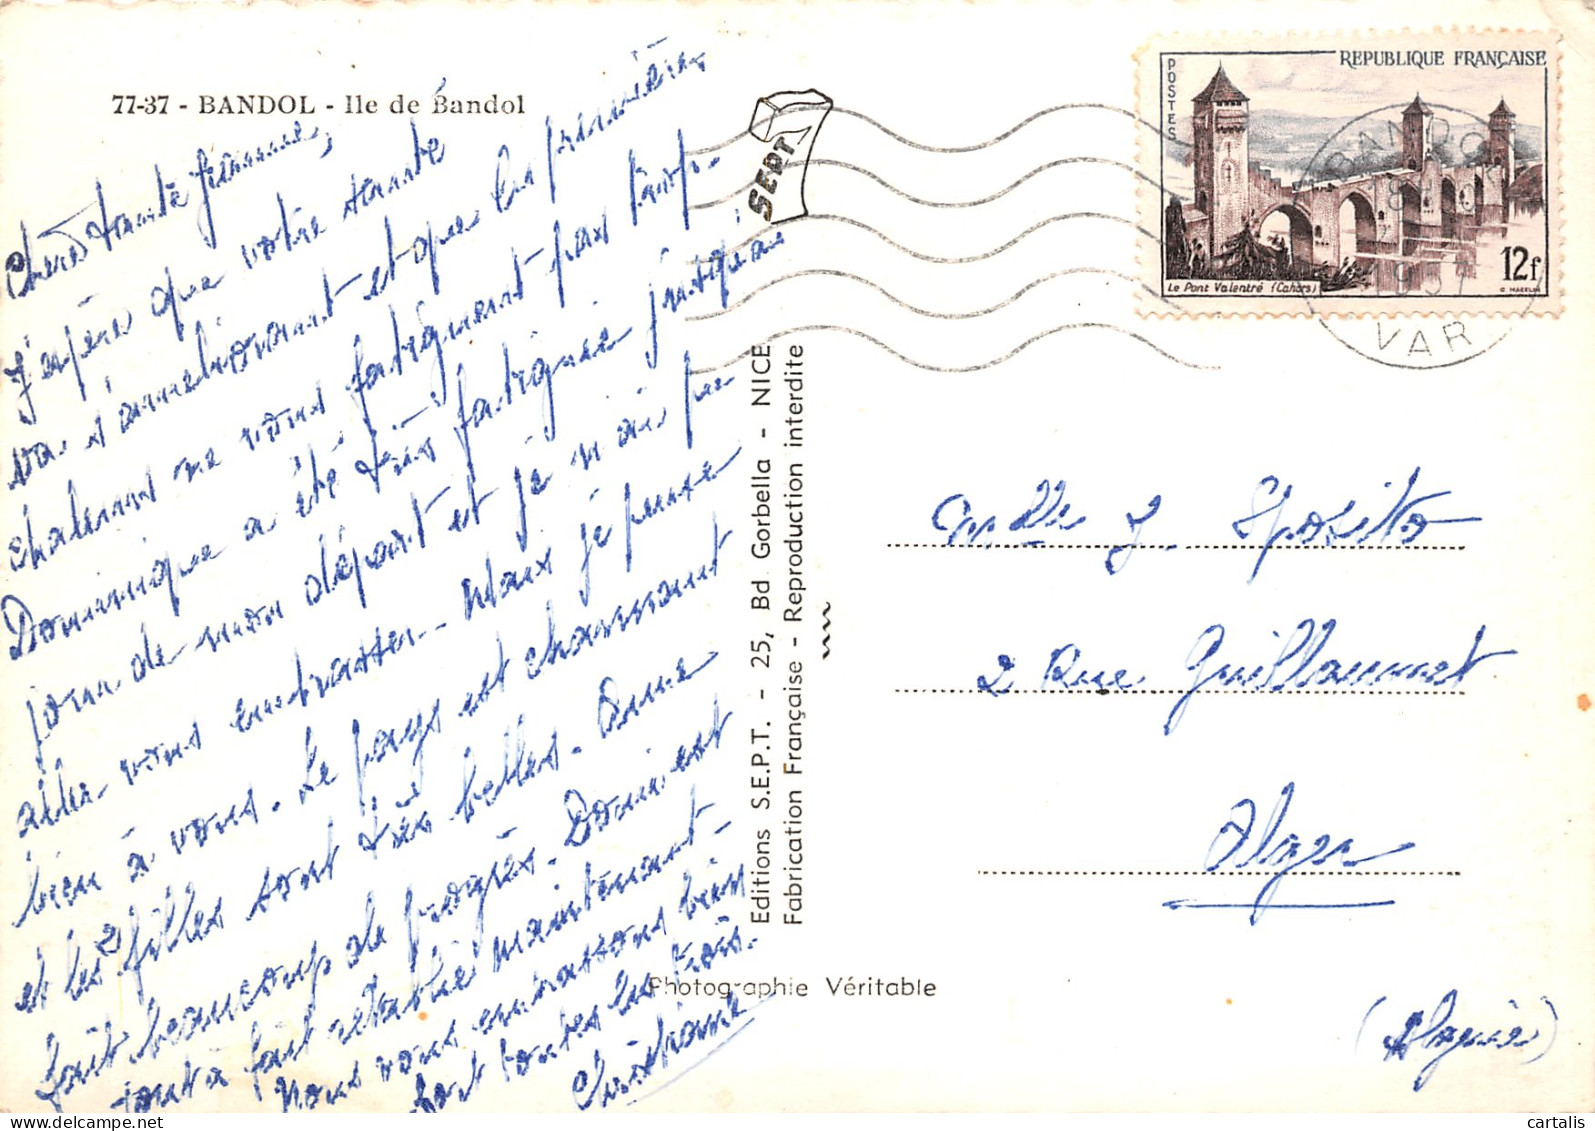 77-37 - BANDOL - Ile de Bandol
Chère tante
J'espère que votre santé
va s'améliorant et que les premières
chaleurs ne vous fatiguent pas trop.
Dominique a été très fatiguée jusqu'au
jour de mon départ et je n'ai pu
aller vous embrasser. Mais je pense
bien à vous. Le pays est charmant
et les 2 filles sont très belles. Anne
fait beaucoup de progrès. Domi est
tout à fait rétablie maintenant.
Nous vous embrassons bien
fort toutes les trois.
Christiane
Editions S.E.P.T. - 25, Bd Gorbella - NICE
Fabrication Française - Reproduction interdite
Photographie Véritable
SEPT
REPUBLIQUE FRANÇAISE
POSTES
12f
Le Pont Valentré (Cahors)
BANDOL
1957
VAR
Mlle J. Sposito
2 Rue Guillaumet
Alger
(Algérie)
cartalis